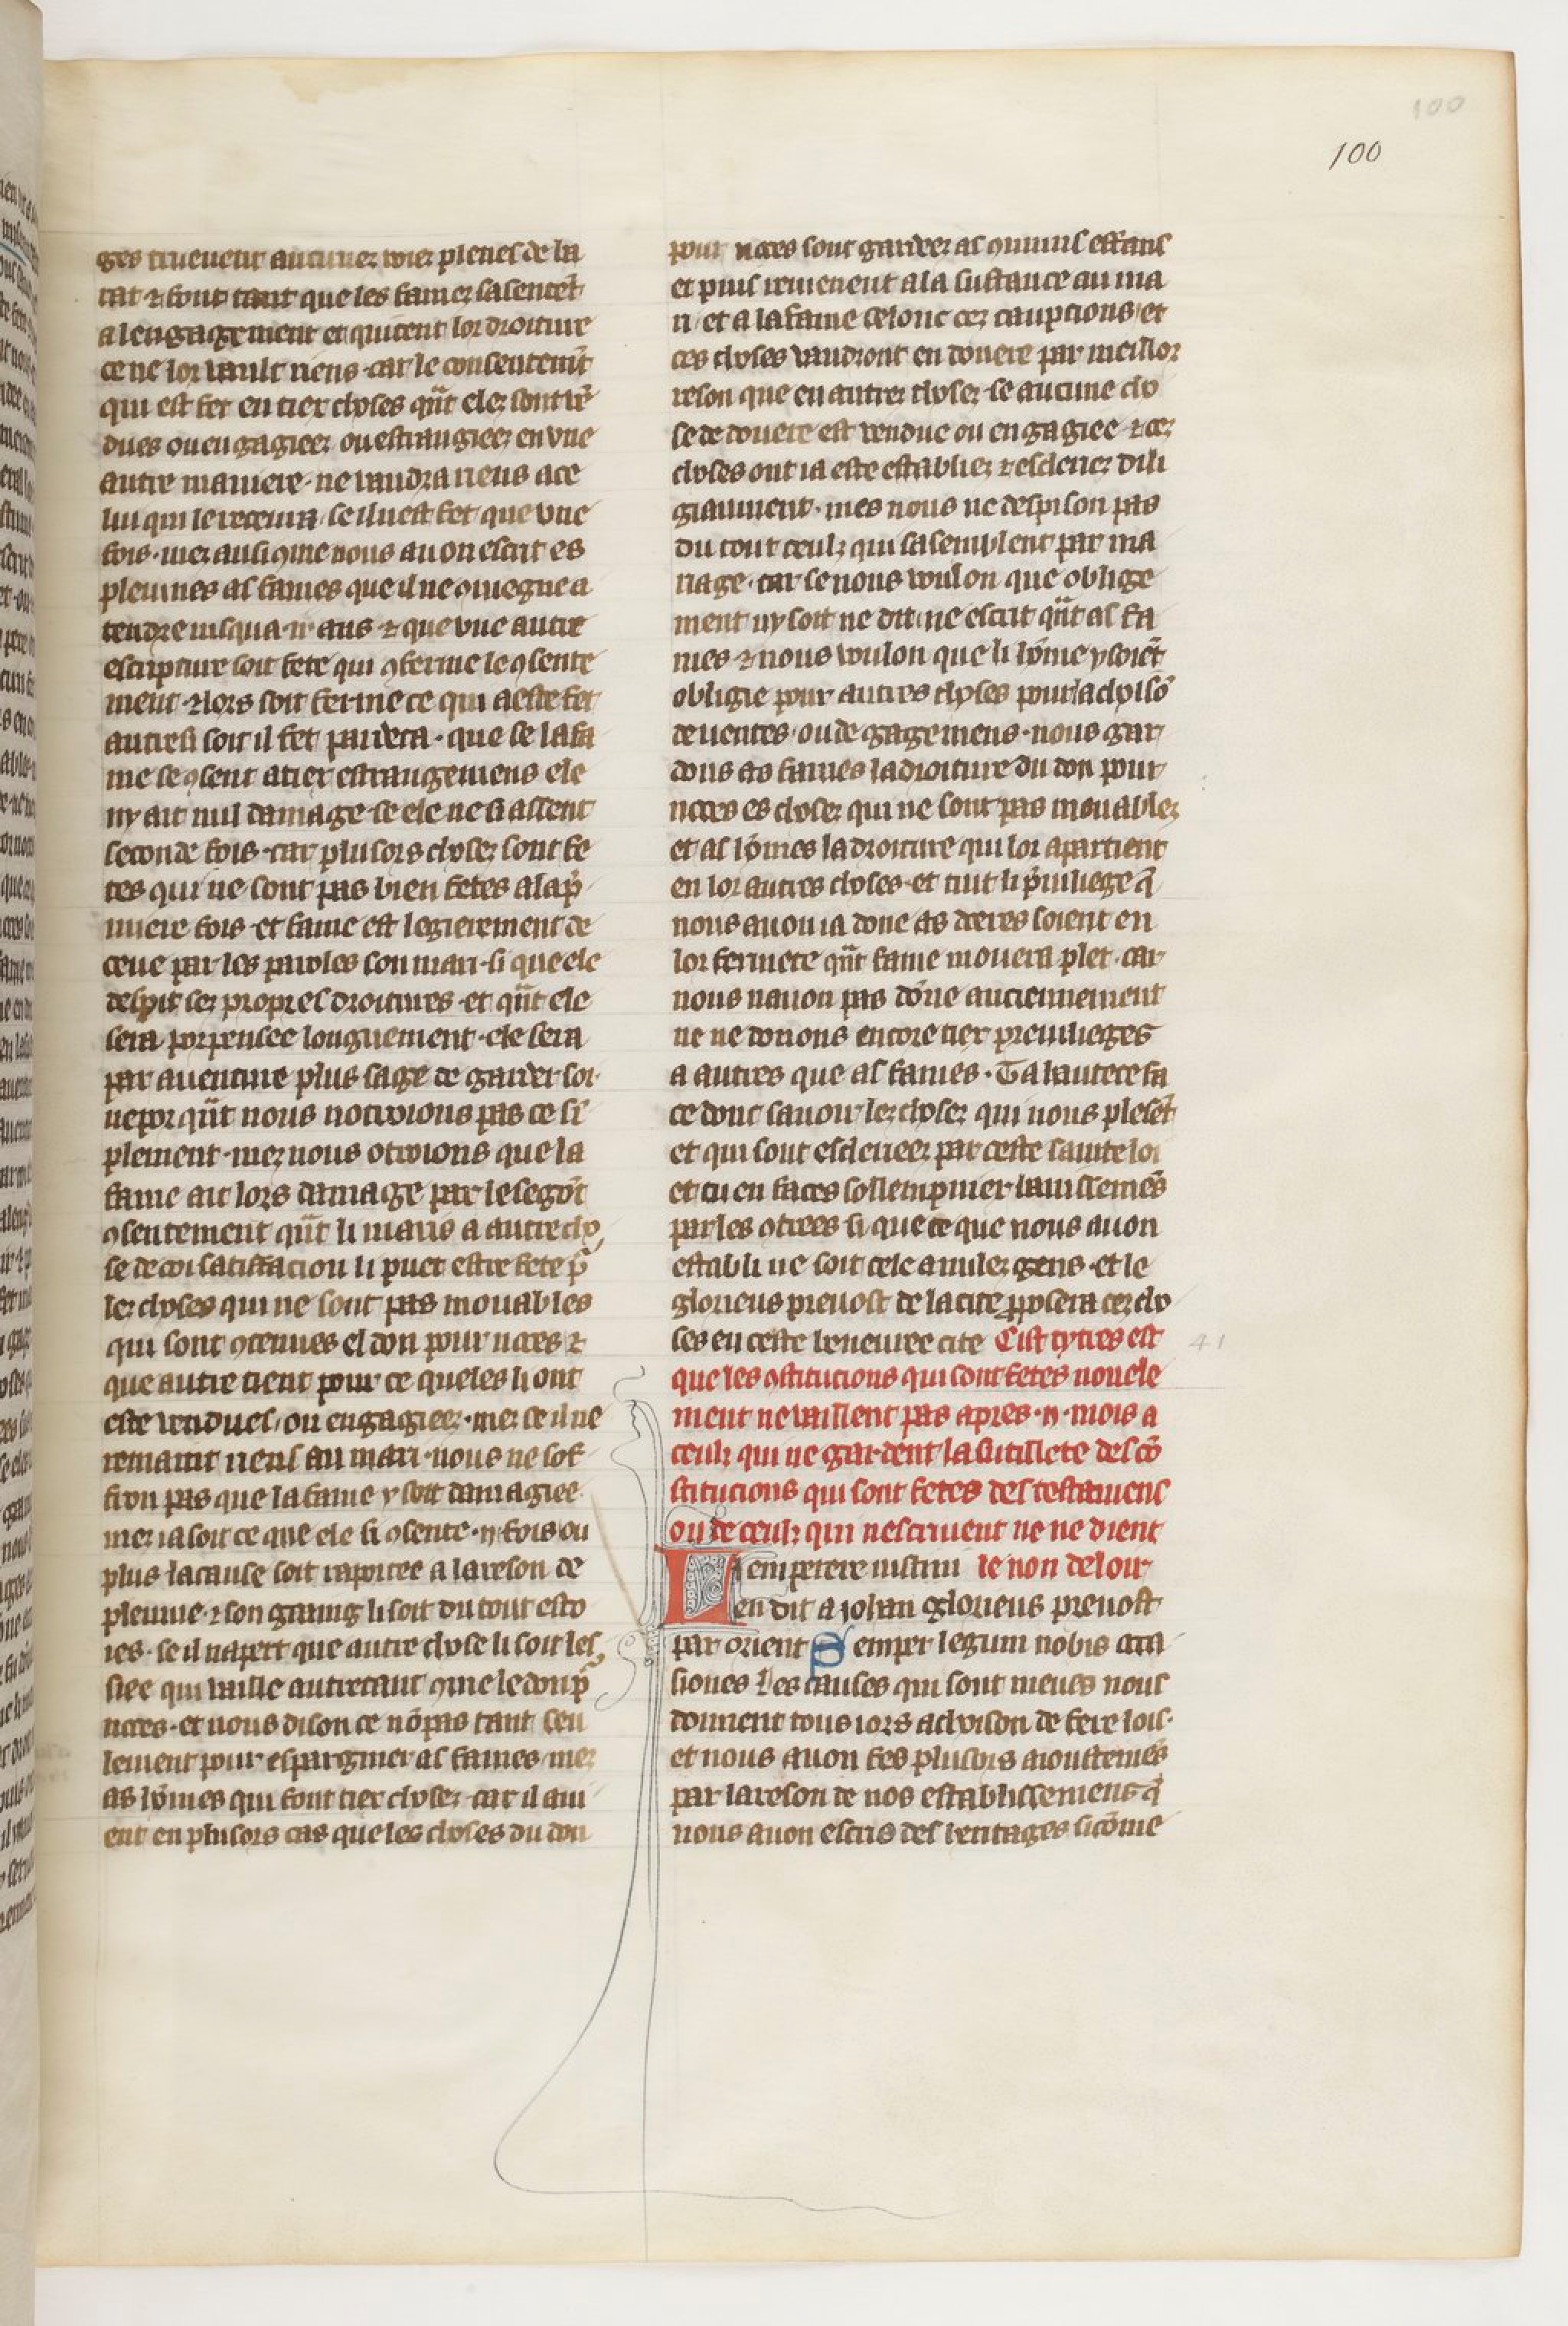 100
100
ges truevent aucunez voiez plenes de la
rat ⁊ font tant que les famez sasentẽt
a lengagement et quitent lor droiture
ce ne lor vault riens · car le consentemẽt
qui est fet en tiex choses qñt elez sont vẽ
dues ou engagieez ou estrangieez en vne
autre maniere · ne vaudra riens a ce
lui qui le recevra / se il nest fet que vne
fois · mez ausi ꝯme nous auon escrit es
pleuines as fames que il ne ꝯuiegne a
tendre iusqua · ii · ans ⁊ que vne autre
escripture soit fete qui ꝯferme le ꝯsente
ment · ⁊ lors soit ferme ce qui a este fet
autresi soit il fet par deca · que se la fa
me se ꝯsent a tiex estrangemens ele
ny ait nul damage · se ele ne si assent
seconde fois · car plusors chosez sont fe
tes qui ne sont pas bien fetes a la p̃
miere fois · et fame est legierement de
ceue par les paroles son mari · si que ele
despit sez propres droitures · et qñt ele
sera porpensee longuement · ele sera
par auenture plus sage de garder soi ·
neporqñt nous notroions pas ce sĩ
plement · mez nous otroions que la
fame ait lors damage par le segõt
ꝯsentement qñt li maris a autre cho
se de coi satiffacion li puet estre fete p̃
lez choses qui ne sont pas mouables
qui sont ꝯtenues el don pour noces ⁊
que autre tient pour ce queles li ont
este vendues / ou engagieez · mez se il ne
remaint riens au mari · nous ne sof
fron pas que la fame y soit damagiee
mez ia soit ce que ele si ꝯsente · ii · fois ou
plus · la cause soit raportee a la reson de
pleuuie · ⁊ son graing li soit du tout esto
ies · se il napert que autre chose li soit les
siee qui vaille autretant ꝯme le don p̃
noces · et nous dison ce nõ pas tant seu
lement pour espargnier as fames / mez
as hõmes qui font tiex chosez · car il aui
ent en plusors cas que les choses du don
pour noces sont gardeez as ꝯmuns effans
et puis reuienent a la sustance au ma
ri / et a la fame celonc cez caupcions / et
ces choses vaudront en douere par meillor
reson que en autrez chosez · se aucune cho
se de douere est vendue ou engagiee · ⁊ cez
choses ont ia este establiez ⁊ esclenez dili
gianment · mes nous ne despison pas
du tout ceulz qui sasemblent par ma
riage · car se nous voulon que oblige
ment ny soit ne dit ne escrit qñt as fa
mes ⁊ nous voulon que li hõme y soiẽt
obligie pour autres choses pour lachoisõ
de uentes / ou de gagemens · nous gar
dons as fames la droiture du don pour
noces es chosez qui ne sont pas mouablez
et as hõmes la droiture qui lor apartient
en lor autres choses · et tuit li p̃uilege q̃
nous auon ia done as doeres soient en
lor fermete qñt fame mouera plet · car
nous nauon pas dõne anciennement
ne ne donons encore tiex preuilieges
a autres que as fames · Ta hautece fa
ce dont savoir lez chosez qui nous plesẽt
et qui sont escleneez par ceste sainte loi
et tu en faces sollempnier laississemẽs
par les ꝯtrees si que ce que nous auon
establi ne soit cele a nulez gens · et le
glorieus preuost de la cite ꝓposera cez cho
ses en ceste beneuree cite Cist tytres est
que les ꝯstitucions qui sont fetes nouele
ment ne vaillent pas apres · ii · mois a
ceulz qui ne gardent la sutillete des cõ
stitucions qui sont fetes des testamens
ou de ceulz qui nescriuent ne ne dient
Lemperere iustini le non de loir
en dit a iohan glorieus preuost
par orient Semper legum nobis occa
siones Les causes qui sont meues nous
donnent tous iors achoison de fere lois ·
et nous auon fes plusors aioustemẽs
par la reson de nos establissemens q̃
nous auon escris des heritages sicõme
41